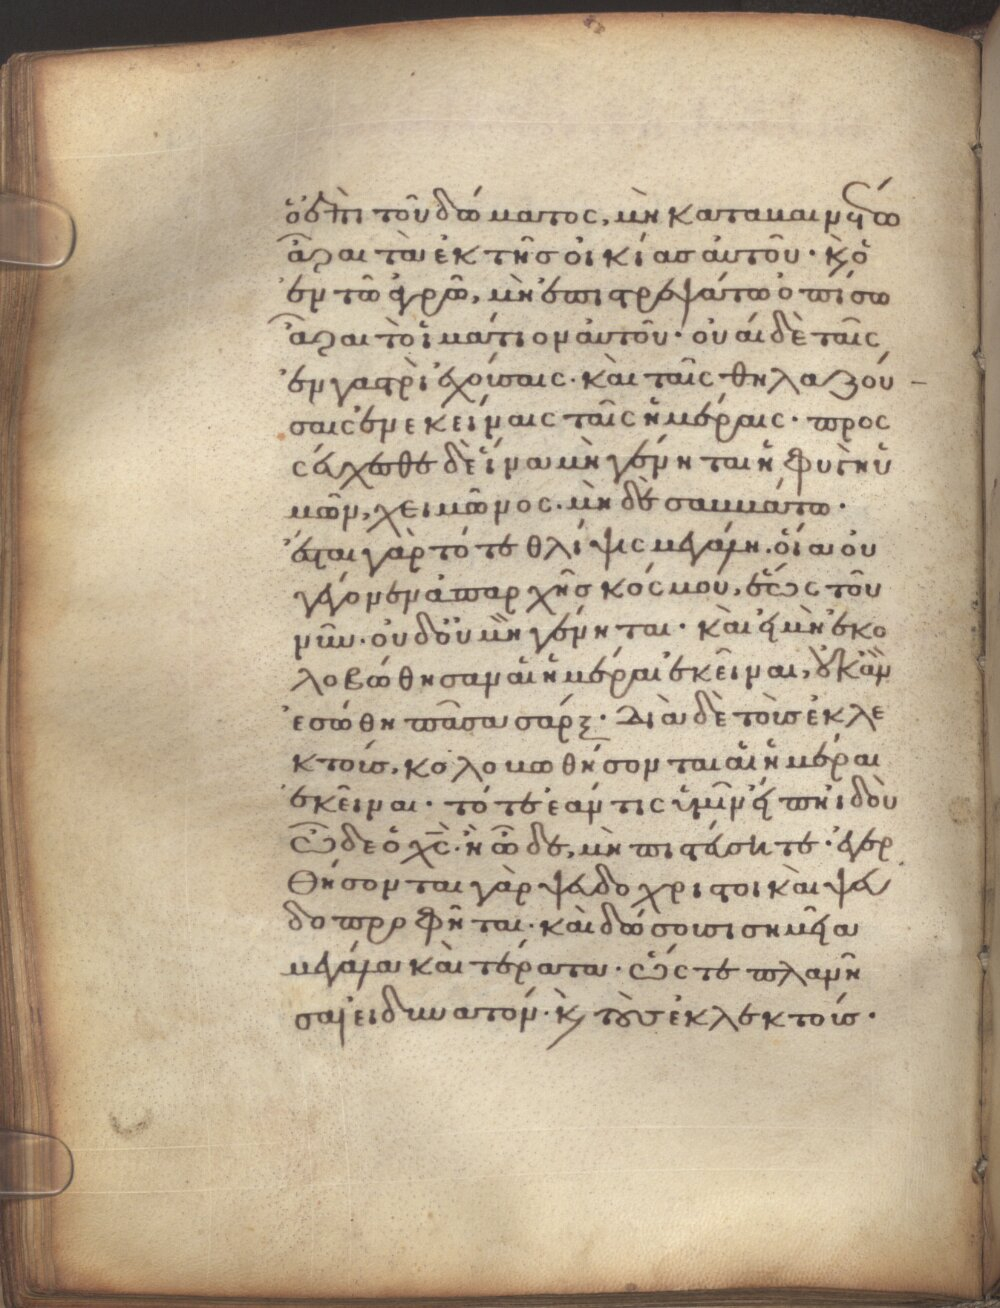 ὁ ἐπὶ τοῦ δώματος, μὴ καταβαινέτω
ἆραι τὰ ἐκ τῆσ οἰκίασ αὐτοῦ · κ ὁ
ἐν τῶ ἀγρῶ, μὴ ἐπιστρεψάτω ὀπίσω
ἆραι τὸ ἱμάτιον αὐτοῦ · οὐαὶ δὲ ταῖς
ἐν γαστρὶ ἐχούσαις · καὶ ταῖς θηλαζού
σαις ἐν εκείναις ταῖς ἡμέραις · προς
εύχεσθε δὲ ἵνα μὴ γένηται ἡ φυγὴ ὑ
μῶν, χειμῶνος · μὴ δὲ σαββάτω ·
ἔσται γὰρ τότε θλίψις μεγάλη · οἵα οὐ
γέγονεν ἀπαρχῆσ κόσμου, ἕως τοῦ
νῦν · οὐδ οὐ μὴ γένηται · καὶ εἰ μὴ ἐκο
λοβώθησαν αἱ ἡμέραι ἐκεῖναι, οὐκ ἂν
εσώθη πᾶσα σάρξ · Διὰ δὲ τοὺσ ἐκλε
κτούσ, κολοβωθήσονται αἱ ἡμέραι
ἐκεῖναι · τότε ἐάν τις ὑμῖν εἴπη ἰδοὺ
ὧδε ὁ χς · ἢ ὧδε, μὴ πιστεύσητε · ἐγερ
θήσονται γὰρ ψευδοχριστοι καὶ ψευ
δοπροφῆται · καὶ δώσουσι σημεῖα
μεγάλα καὶ τέρατα · ὥς τε πλανῆ
σαι εἰ δυνατόν · κ τοὺσ ἐκλεκτούσ ·